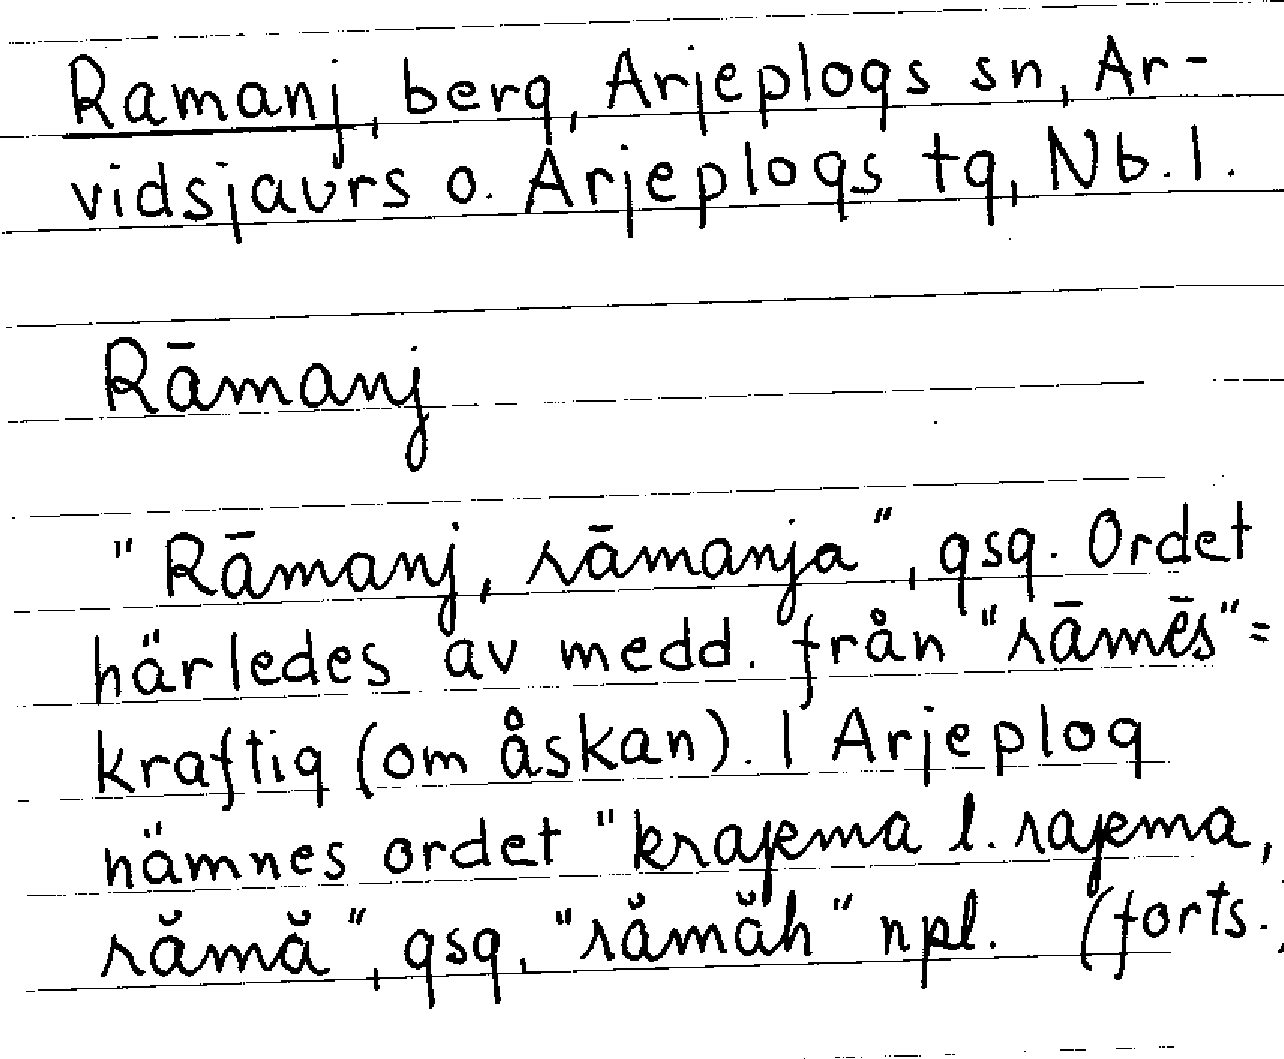 Ramanj, berg, Arjeplogs sn, Ar-
vidsjaurs o. Arjeplogs tg, Nb. l.
Rāmanj
"Rāmanj, rāmanja", gsg. Ordet
härledes av medd. från "rāmēs" =
kraftig (om åskan). I Arjeplog
nämnes ordet "krajema l. rajema,
rămă", gsg, "rămăh" npl. (forts.)